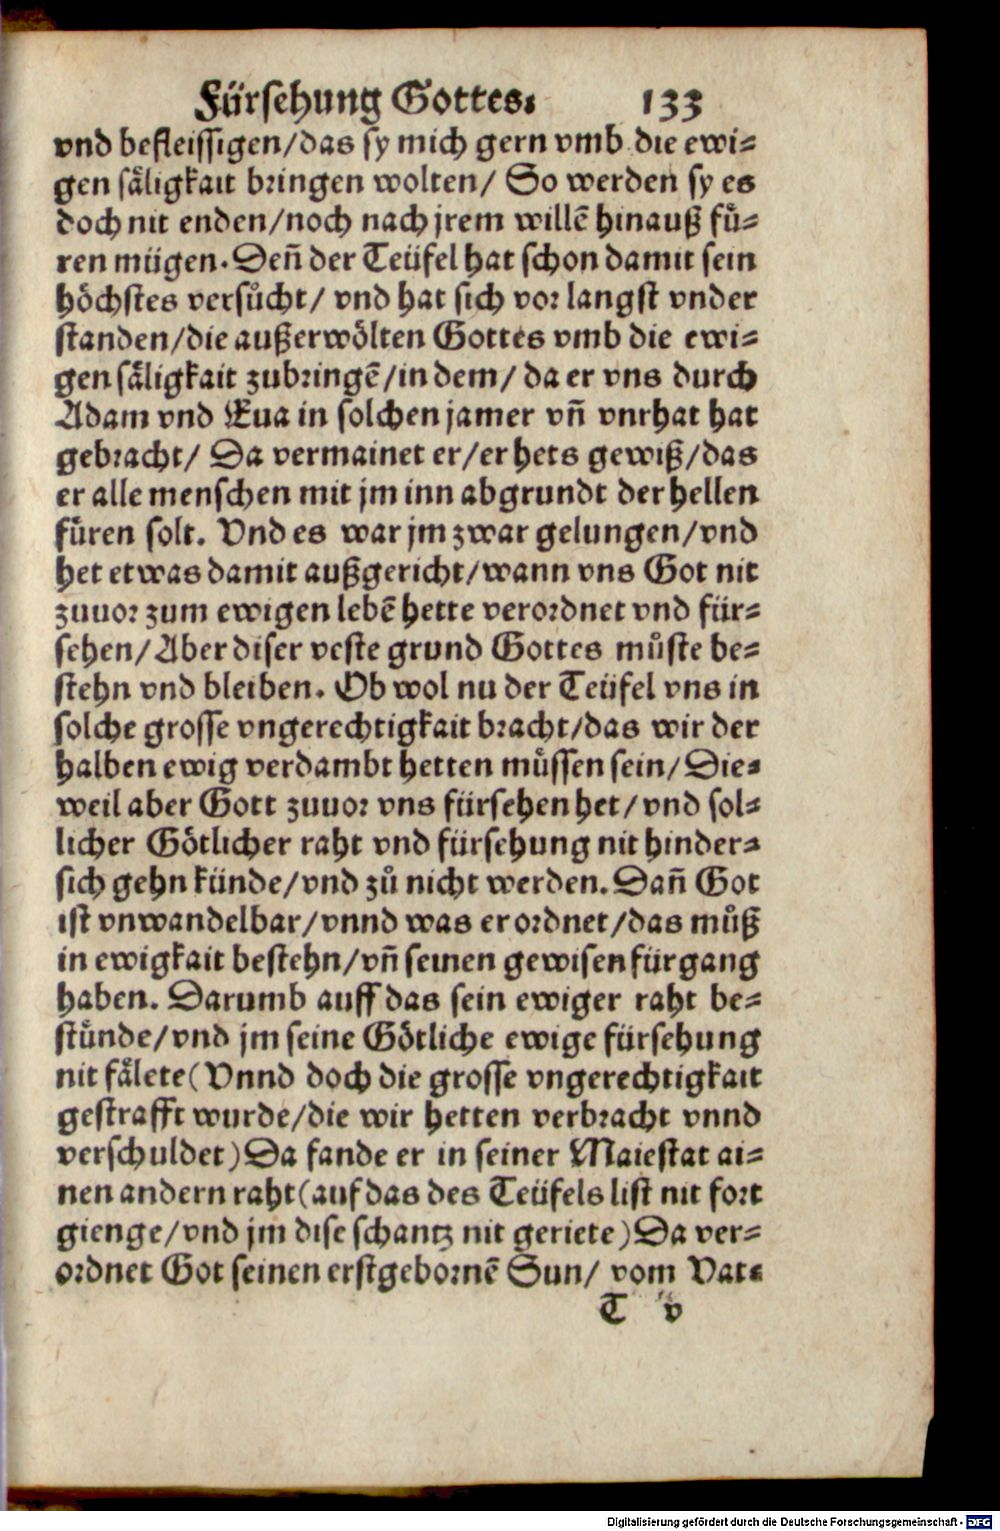 Fürsehung Gottes. 133
vnd befleissigen/das sy mich gern vmb die ewi-
gen sa̋ligkait bringen wolten/ So werden sy es
doch nit enden/noch nach jrem willē hinauß fuͤ-
ren mügen. Deñ der Teüfel hat schon damit sein
hoͤchstes versuͦcht/ vnd hat sich vor langst vnder
standen/die außerwoͤlten Gottes vmb die ewi-
gen saͤligkait zubringē/in dem/ da er vns durch
Adam vnd Eua in solchen jamer vñ vnrhat hat
gebracht/ Da vermainet er/er hets gewiß/das
er alle menschen mit jm inn abgrundt der hellen
fuͤren solt. Vnd es war jm zwar gelungen/vnd
het etwas damit außgericht/wann vns Got nit
zuuor zum ewigen lebē hette verordnet vnd für-
sehen/Aber diser veste grund Gottes muͦste be-
stehn vnd bleiben. Ob wol nu der Teüfel vns in
solche grosse vngerechtigkait bracht/das wir der
halben ewig verdambt hetten muͤssen sein/ Die-
weil aber Gott zuuor vns fürsehen het/vnd sol-
licher Goͤtlicher raht vnd fürsehung nit hinder-
sich gehn künde/vnd zuͦ nicht werden. Dañ Got
ist vnwandelbar/vnnd was er ordnet/das muͦß
in ewigkait bestehn/vñ seinen gewisen fürgang
haben. Darumb auff das sein ewiger raht be-
stuͤnde/vnd jm seine Goͤtliche ewige fürsehung
nit faͤlete(Vnnd doch die grosse vngerechtigkait
gestrafft wurde/die wir hetten verbracht vnnd
verschuldet)Da fande er in seiner Maiestat ai-
nen andern raht(auf das des Teüfels list nit fort
gienge/vnd jm dise schantz nit geriete)Da ver-
ordnet Got seinen erstgebornē Sun/ vom Vat-
T v
Digitalisierung gefördert durch die Deutsche Forschungsgemeinschaft - DFG